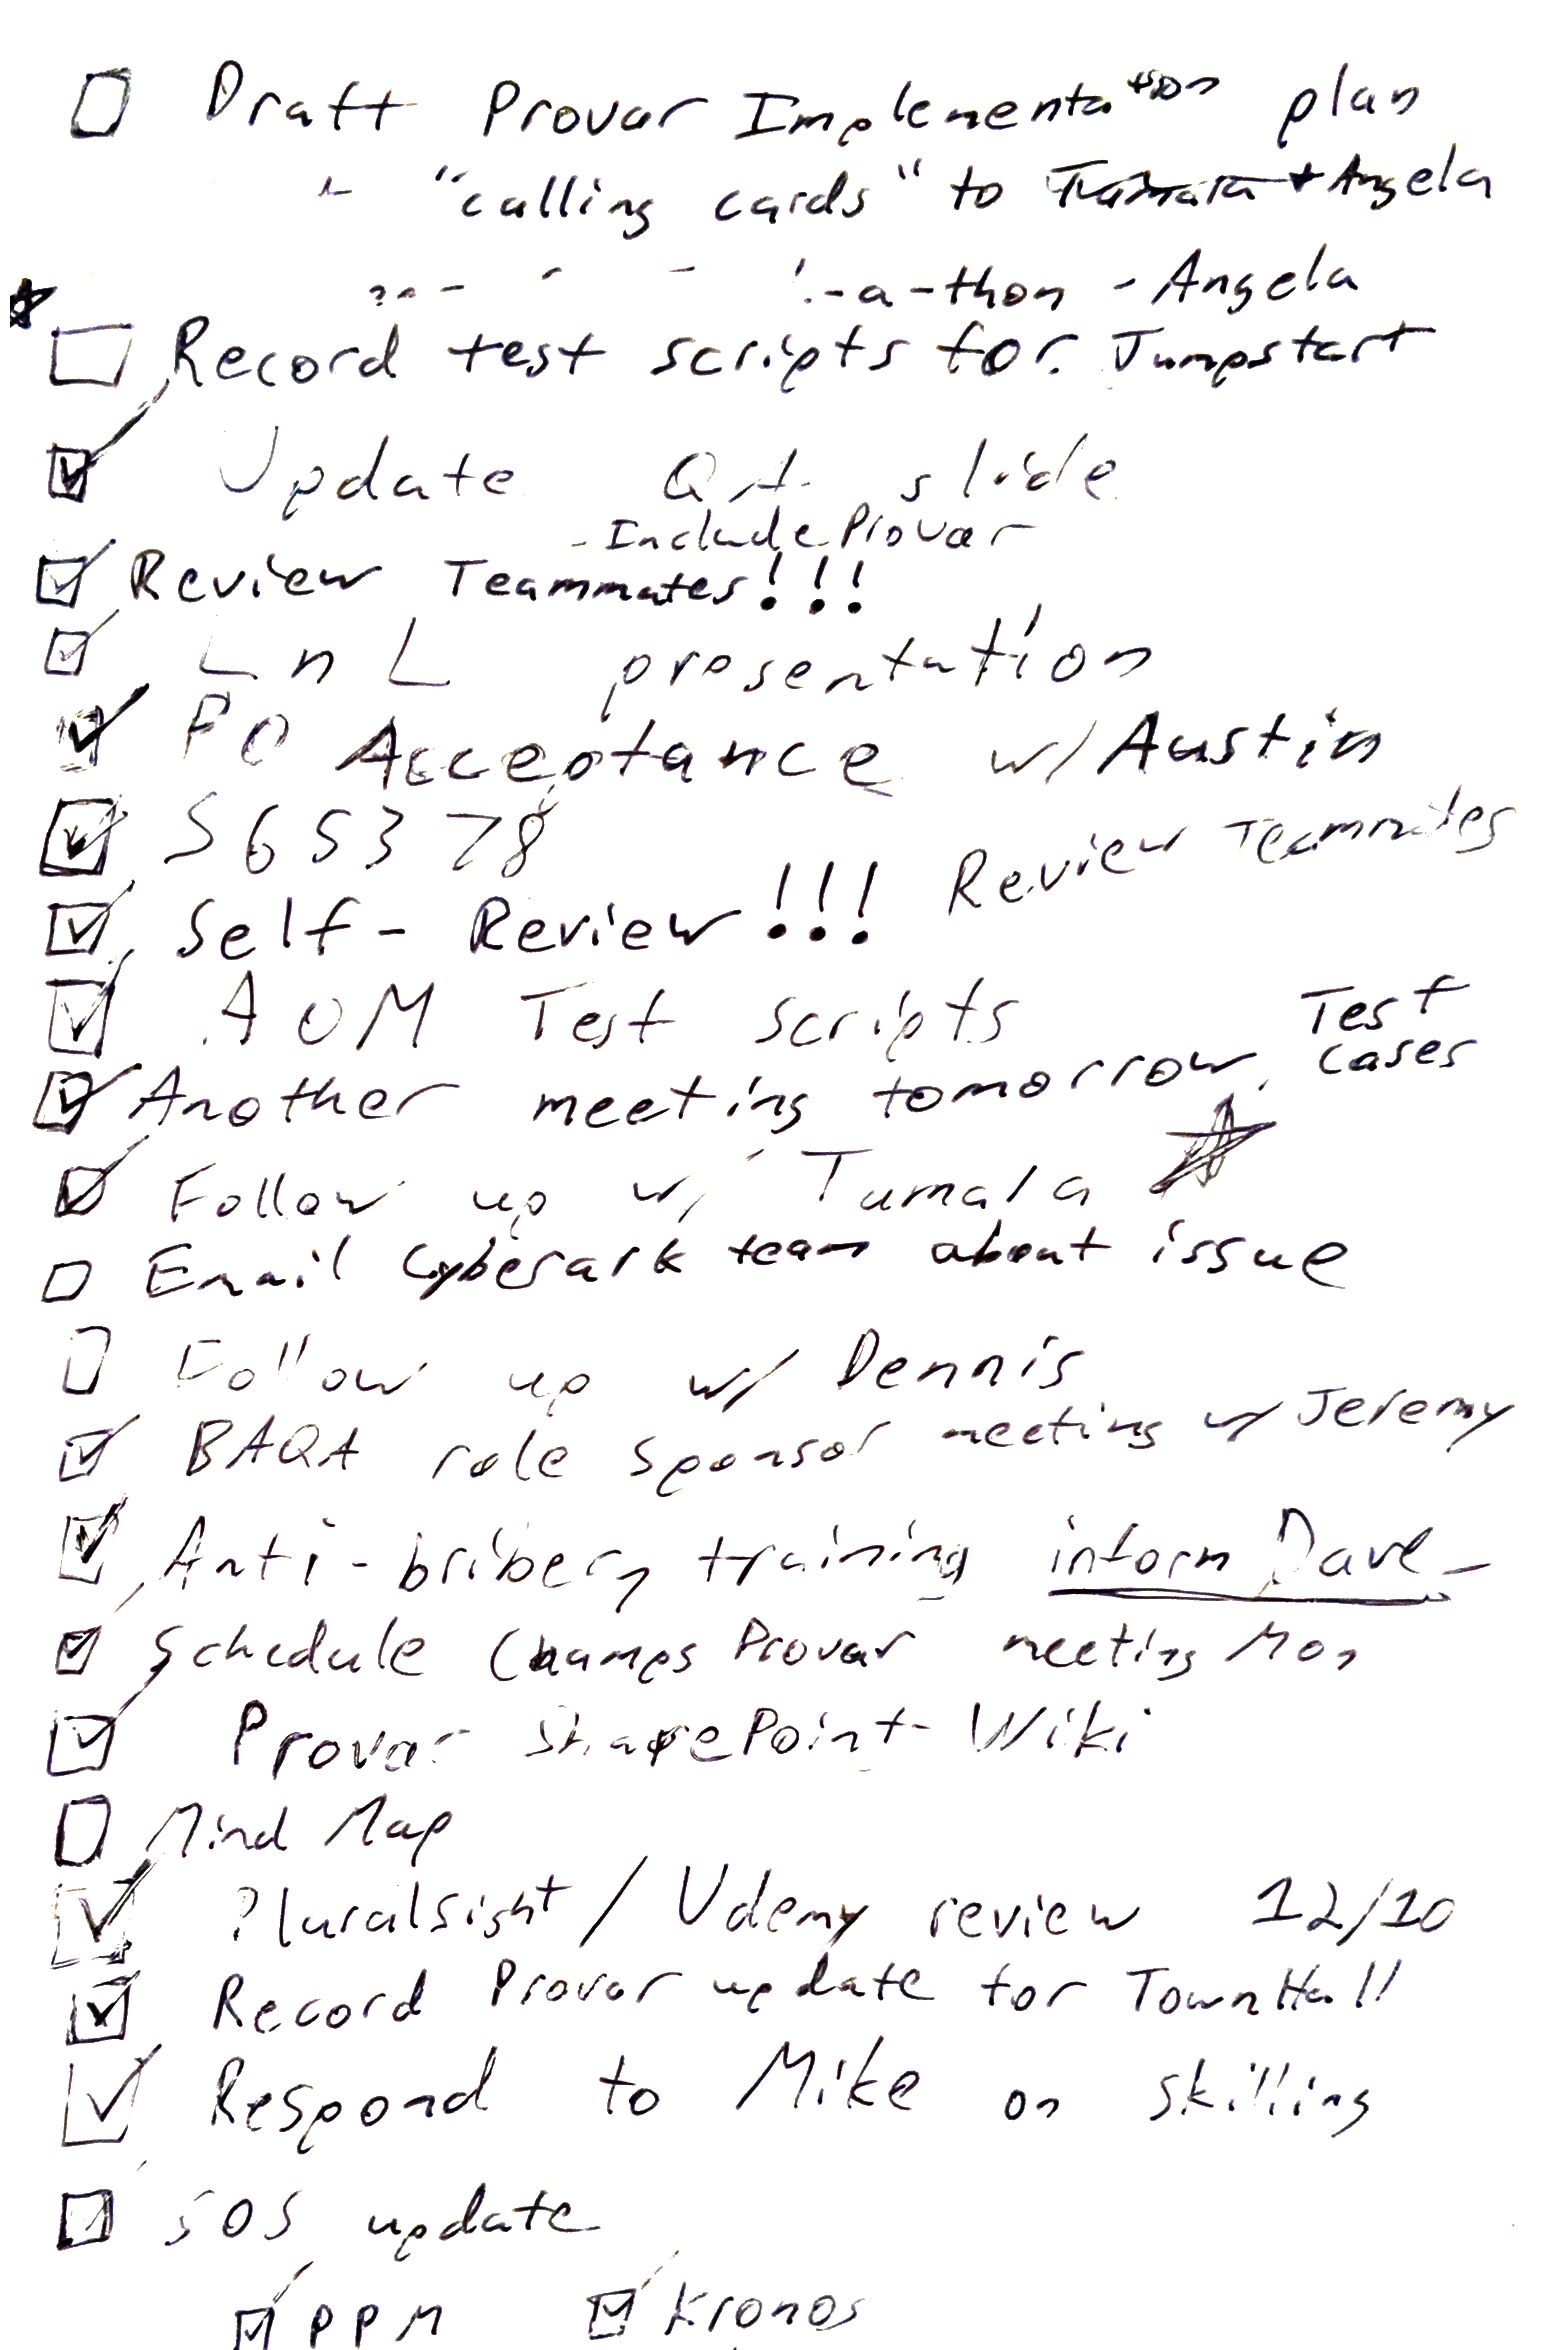 Draft Provar Implementation plan
"calling cards" to Tamara + Angela
-a-thon - Angela
Record test scripts for Jumpstart
Update QA slide
- Include Provar
Review Teammates!!!
LnL presentation
PO Acceptance w/ Austin
S65378
Self-Review!!! Review Teammates
AOM Test scripts
Another meeting tomorrow. Test cases
Follow up w/ Tamara
Email Cyberark team about issue
Follow up w/ Dennis
BAQA role sponsor meeting w/ Jeremy
Anti-bribery training inform Dave
Schedule Champs Provar meeting Mon
Provar SharePoint Wiki
Mind Map
Pluralsight / Udemy review 12/10
Record Provar update for TownHall
Respond to Mike on skilling
SOS update
PPM Kronos